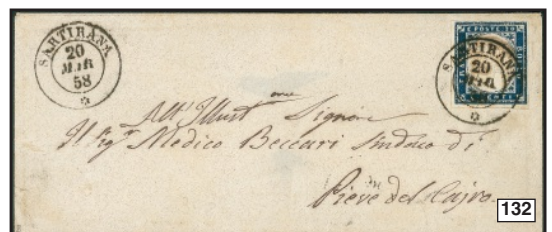 SARTIRANA
20
MAR
58
C. POSTE 20
SARTIRANA
20
MAR
All'Illust.me Signore
Il Sig.r Medico Beccari Sindaco di
Pieve del Cajro
132